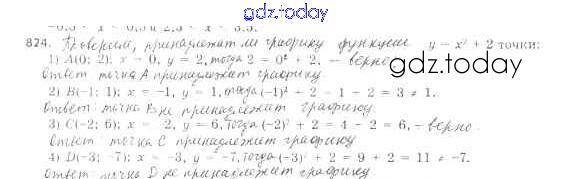 gdz.today
-0,5 < x < 0,5 и 2,5 < x < 3,5.
824. Проверим, принадлежат ли графику функции y = x² + 2 точки:
1) A(0; 2); x = 0, y = 2, тогда 2 = 0² + 2. – верно
Ответ: точка A принадлежит графику.
gdz.today
2) B(-1; 1); x = -1, y = 1, тогда (-1)² + 2 = 1 + 2 = 3 ≠ 1.
Ответ: точка B не принадлежит графику.
3) C(-2; 6); x = -2, y = 6, тогда (-2)² + 2 = 4 + 2 = 6, – верно.
Ответ точка C принадлежит графику
4) D(-3; -7); x = -3, y = -7, тогда (-3)² + 2 = 9 + 2 = 11 ≠ -7.
Ответ: точка D не принадлежит графику
gdz.today